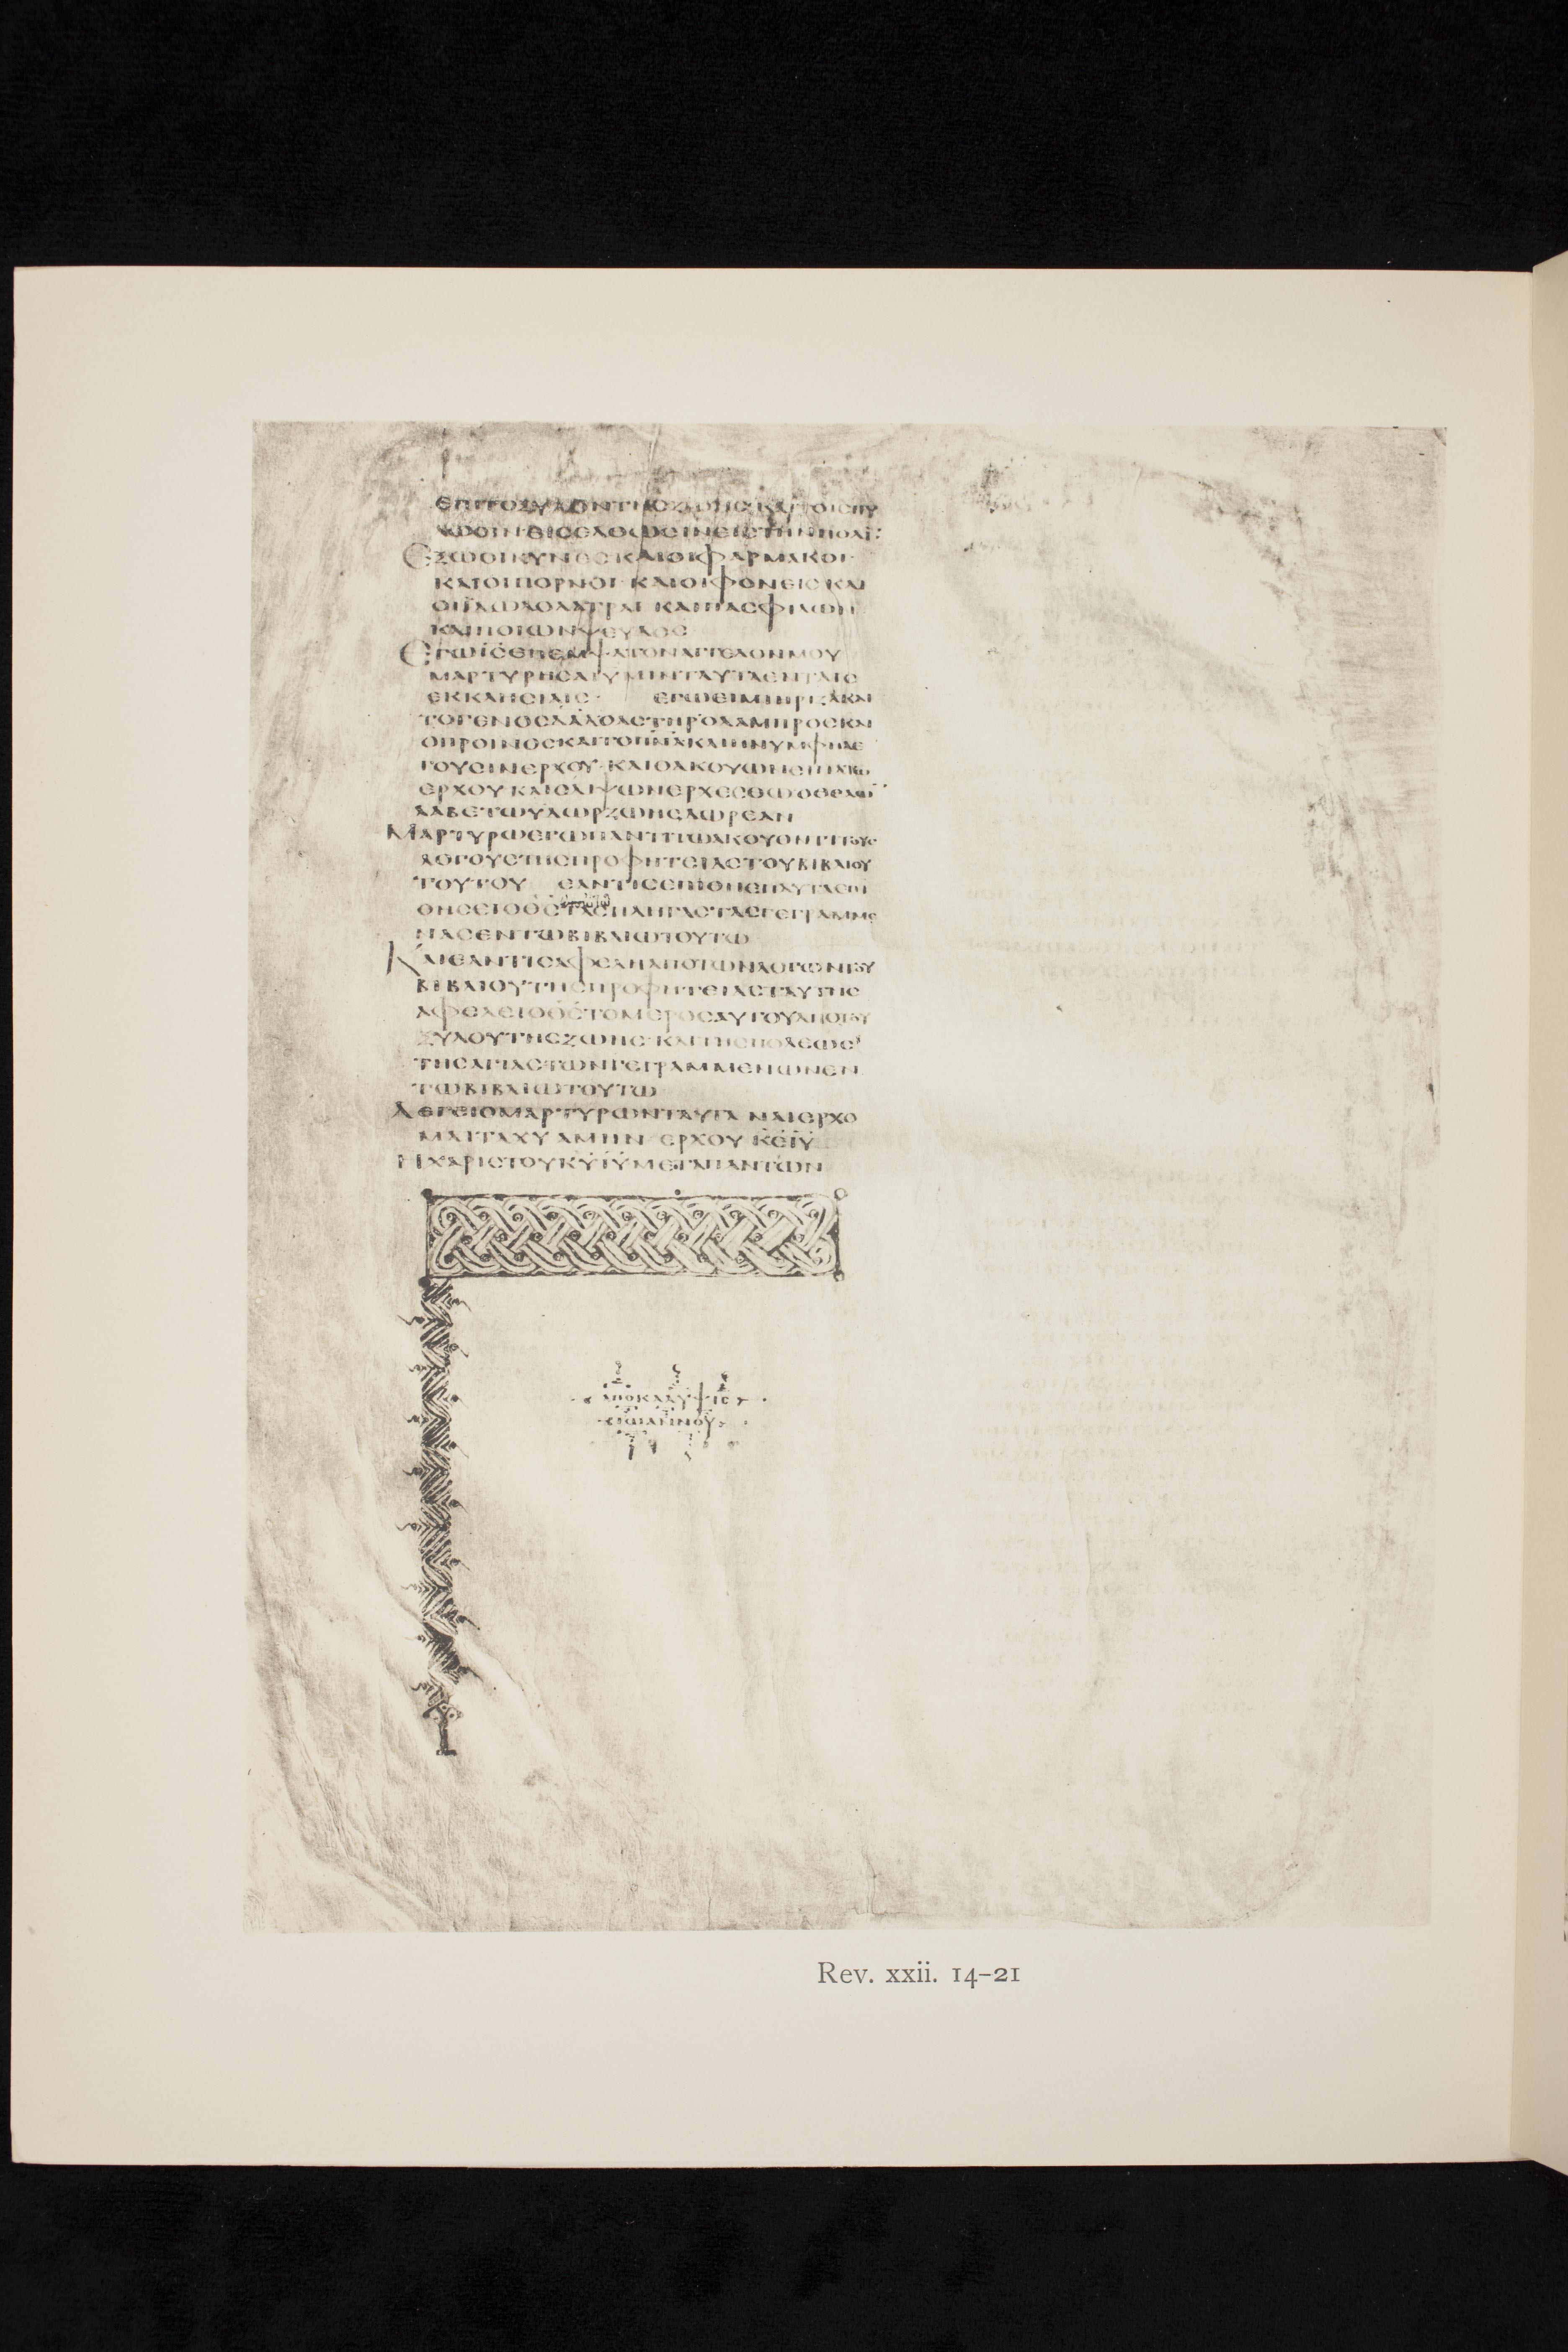 ΕΠΙΤΟΞΥΛΟΝΤΗϹΖΩΗϹΚΑΙΤΟΙϹΠΥ
ΛΩϹΙΝΕΙϹΕΛΘΩϹΙΝΕΙϹΤΗΝΠΟΛΙ
ΕΞΩΟΙΚΥΝΕϹΚΑΙΟΙΦΑΡΜΑΚΟΙ
ΚΑΙΟΙΠΟΡΝΟΙ ΚΑΙΟΙΦΟΝΕΙϹΚΑΙ
ΟΙΪΔΩΛΟΛΑΤΡΑΙ ΚΑΙΠΑϹΦΙΛΩΝ
ΚΑΙΠΟΙΩΝΨΕΥΔΟϹ
ΕΓΩΙϹΕΠΕΜΨΑΤΟΝΑΓΓΕΛΟΝΜΟΥ
ΜΑΡΤΥΡΗϹΑΙΫΜΙΝΤΑΥΤΑΕΝΤΑΙϹ
ΕΚΚΛΗϹΙΑΙϹ· ΕΓΩΕΙΜΙΗΡΙΖΑΚΑΙ
ΤΟΓΕΝΟϹΔΑΔΟΑϹΤΗΡΟΛΑΜΠΡΟϹΚΑΙ
ΟΠΡΟΙΝΟϹΚΑΙΤΟΠΝΑΚΑΙΗΝΥΜΦΗΛΕ
ΓΟΥϹΙΝΕΡΧΟΥ·ΚΑΙΟΑΚΟΥΩΝΕΙΠΑΤΩ
ΕΡΧΟΥ ΚΑΙΟΔΙΨΩΝΕΡΧΕϹΘΩΟΘΕΛΩΝ
ΛΑΒΕΤΩΥΔΩΡΖΩΗϹΔΩΡΕΑΝ
ΜΑΡΤΥΡΩΕΓΩΠΑΝΤΙΤΩΑΚΟΥΟΝΤΙΤΟΥϹ
ΛΟΓΟΥϹΤΗϹΠΡΟΦΗΤΕΙΑϹΤΟΥΒΙΒΛΙΟΥ
ΤΟΥΤΟΥ ΕΑΝΤΙϹΕΠΙΘΗ
ΘΗϹΕΙΟΘϹΤΑϹΠΛΗΓΑϹΤΑϹΓΕΓΡΑΜΜΕ
ΝΑϹΕΝΤΩΒΙΒΛΙΩΤΟΥΤΩ
ΚΑΙΕΑΝΤΙϹΑΦΕΛΗΑΠΟΤΩΝΛΟΓΩΝΤΟΥ
ΒΙΒΛΙΟΥΤΗϹΠΡΟΦΗΤΕΙΑϹΤΑΥΤΗϹ
ΑΦΕΛΕΙΟΘϹΤΟΜΕΡΟϹΑΥΤΟΥΑΠΟΤΟΥ
ΞΥΛΟΥΤΗϹΖΩΗϹ ΚΑΙΤΗϹΠΟΛΕΩϹ
ΤΗϹΑΓΙΑϹΤΩΝΓΕΓΡΑΜΜΕΝΩΝΕΝ
ΤΩΒΙΒΛΙΩΤΟΥΤΩ
ΛΕΓΕΙΟΜΑΡΤΥΡΩΝΤΑΥΤΑ ΝΑΙΕΡΧΟ
ΜΑΙΤΑΧΥ ΑΜΗΝ ΕΡΧΟΥ ΚΕΙΥ
ΗΧΑΡΙϹΤΟΥΚΥΙΥΜΕΤΑΠΑΝΤΩΝ
ΑΠΟΚΑΛΥΨΙϹ
ΙΩΑΝΝΟΥ
Rev. xxii. 14–21